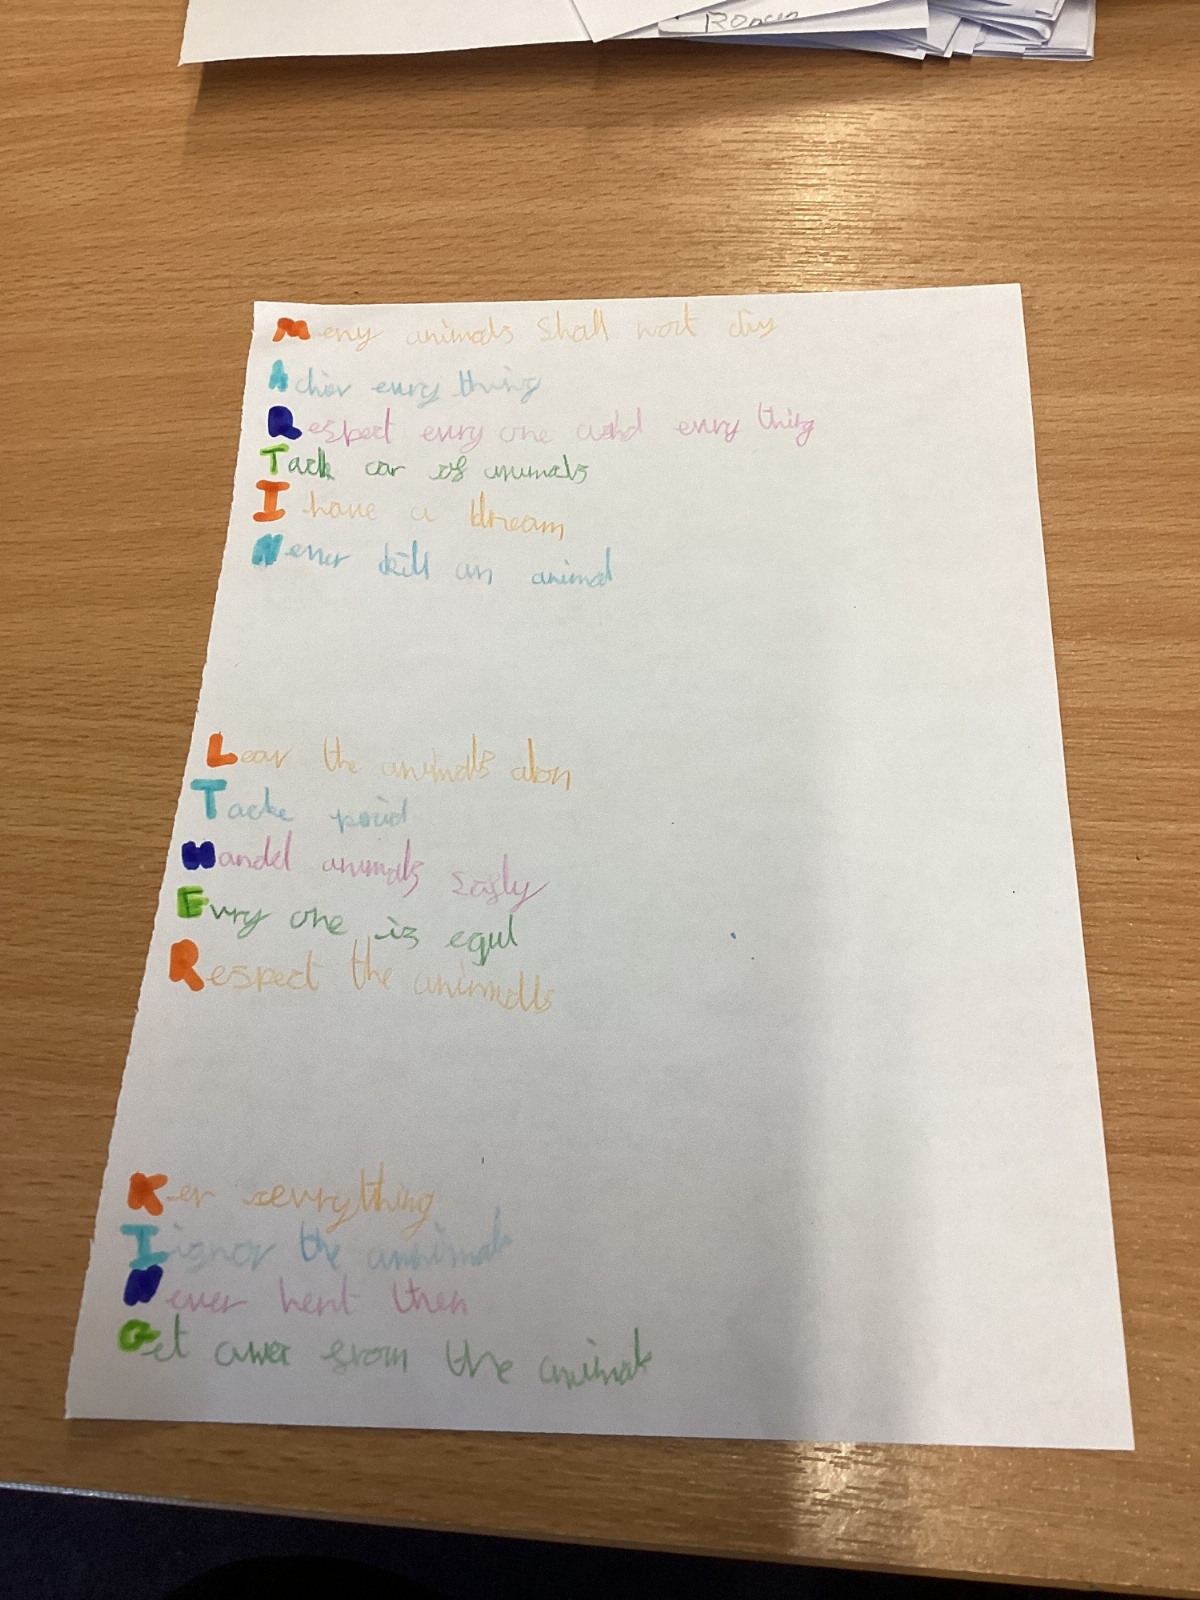 Roman
Meny animals shall wort diy
Achiv evry thing
Respect evry one and evry thing
Tack car of animals
I have a dream
Never kill an animal
Leav the animals alon
Tacke
Handel animals Safly
Evry one is equl
Respect the animalls
Ker evrything
Iignor the animals
Never hert them
Get awer from the animals